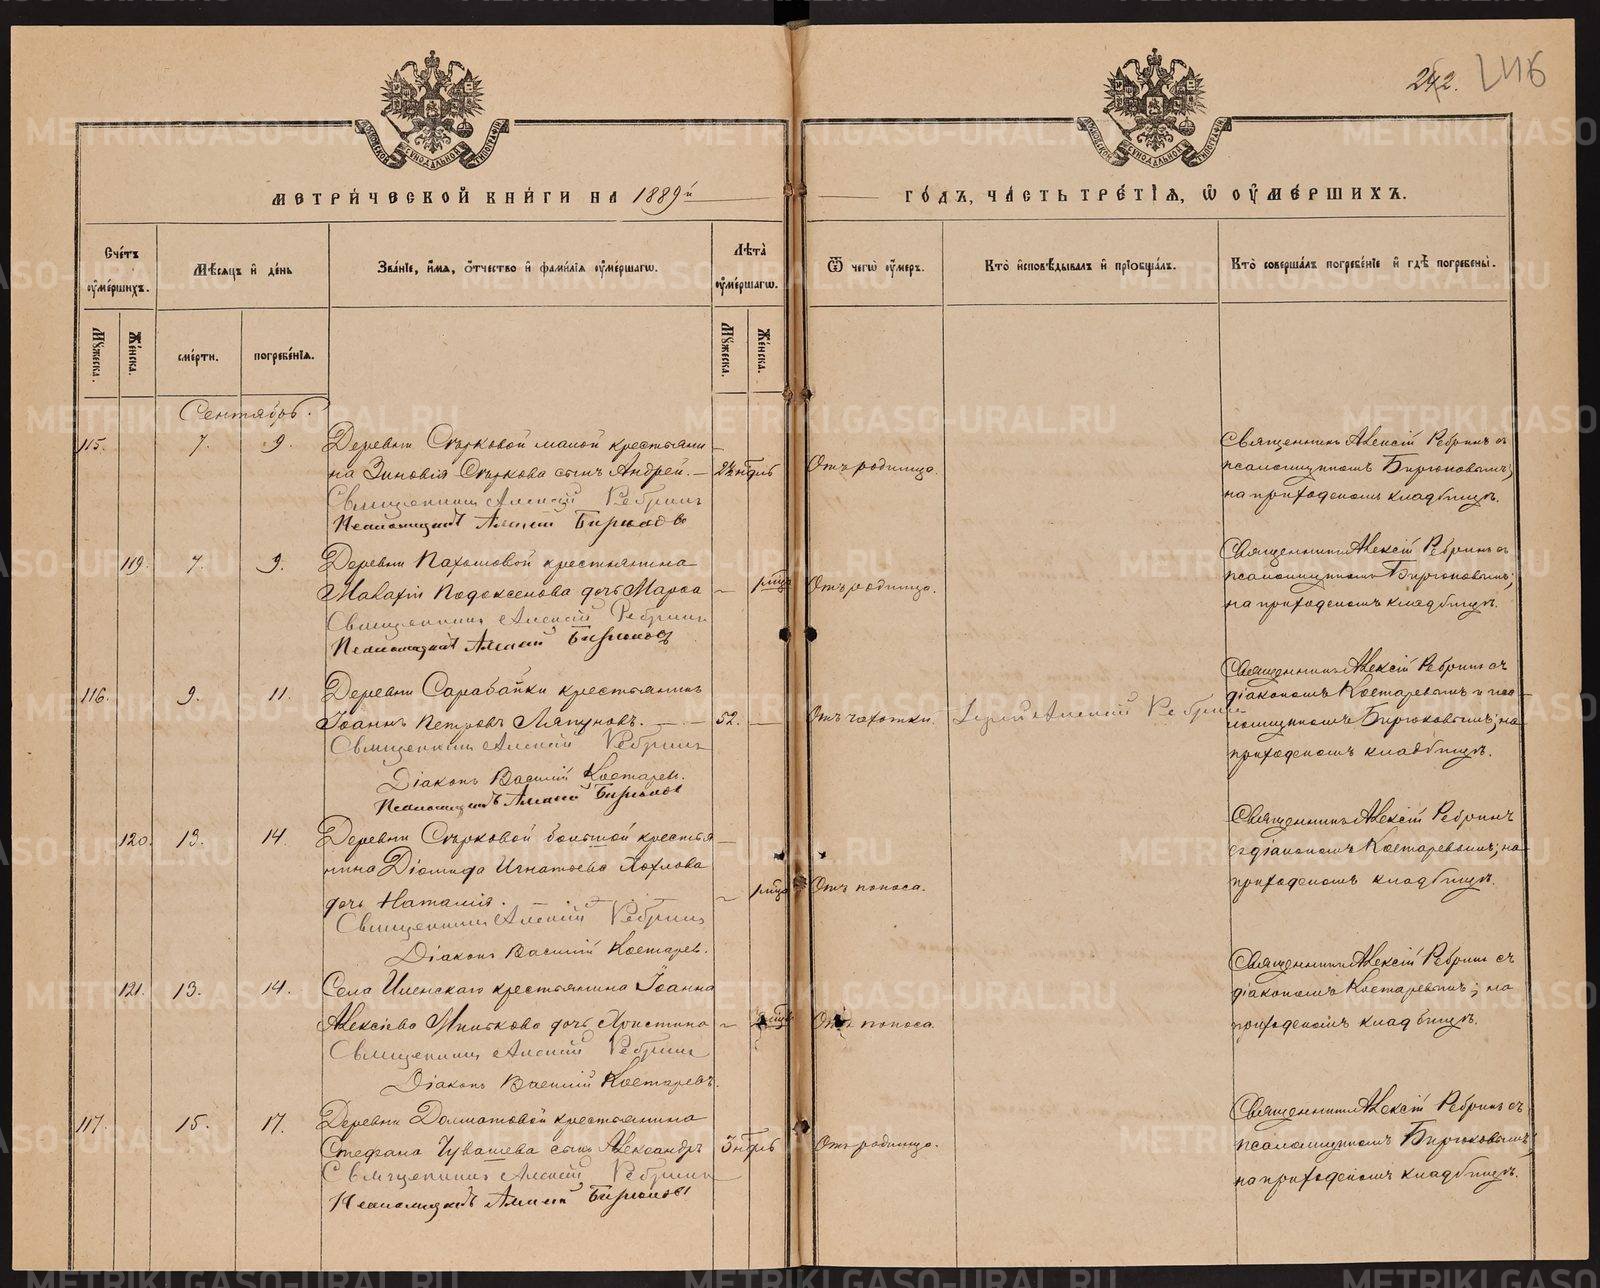 242. 246
МЕТРИЧЕСКОЙ КНИГИ НА 1889й
ГОДЪ, ЧАСТЬ ТРЕТІЯ, Ѿ ОУМЕРШИХЪ.
Счетъ оумершихъ.
Мѣсяцъ и день
Званіе, имя, отчество и фамилія оумершагѡ.
Лѣта оумершагѡ.
Ѿ чегѡ оумеръ.
Кто исповѣдывалъ и пріобщалъ.
Кто совершалъ погребеніе и гдѣ погребены.
Мужеска. Женска.
смерти. погребенія.
Мужеска. Женска.
Сентябрь.
115. 7. 9. Деревни Сѣрковой малой крестьяни-
на Зиновія Сѣркова сынъ Андрей. Отъ родимца.
Священникъ Алексій Ребринъ
Псаломщикъ Алексій Бирюковъ
Священникъ Алексій Ребринъ съ
псаломщикомъ Бирюковымъ;
на приходскомъ кладбищѣ.
119. 7. 9. Деревни Пахомовой крестьянина
Макарія Подоксенова дочь Марѳа Отъ родимца.
Священникъ Алексій Ребринъ
Псаломщикъ Алексій Бирюковъ
Священникъ Алексій Ребринъ съ
псаломщикомъ Бирюковымъ;
на приходскомъ кладбищѣ.
116. 9. 11. Деревни Сарабайки крестьянинъ
Іоаннъ Петровъ Ляпуновъ. 52. Отъ чахотки. Іерей Алексій Ребринъ
Священникъ Алексій Ребринъ
Діаконъ Василій Костарев.
Псаломщикъ Алексій Бирюковъ
Священникъ Алексій Ребринъ съ
діакономъ Костаревымъ и пса-
ломщикомъ Бирюковымъ; на
приходскомъ кладбищѣ.
120. 13. 14. Деревни Сѣрковой большой крестья-
нина Діомида Игнатьева Хохлова
дочь Наталія. Отъ поноса.
Священникъ Алексій Ребринъ
Діаконъ Василій Костарев.
Священникъ Алексій Ребринъ
съ діакономъ Костаревымъ; на
приходскомъ кладбищѣ.
121. 13. 14. Села Иленскаго крестьянина Іоанна
Алексіева дочь Христина Отъ поноса.
Священникъ Алексій Ребринъ
Діаконъ Василій Костаревъ.
Священникъ Алексій Ребринъ съ
діакономъ Костаревымъ; на
приходскомъ кладбищѣ.
117. 15. 17. Деревни Долматовой крестьянина
Стефана Чувашева сынъ Александръ Отъ родимца.
Священникъ Алексій Ребринъ
Псаломщикъ Алексій Бирюковъ
Священникъ Алексій Ребринъ съ
псаломщикомъ Бирюковымъ;
на приходскомъ кладбищѣ.
METRIKI.GASO-URAL.RU